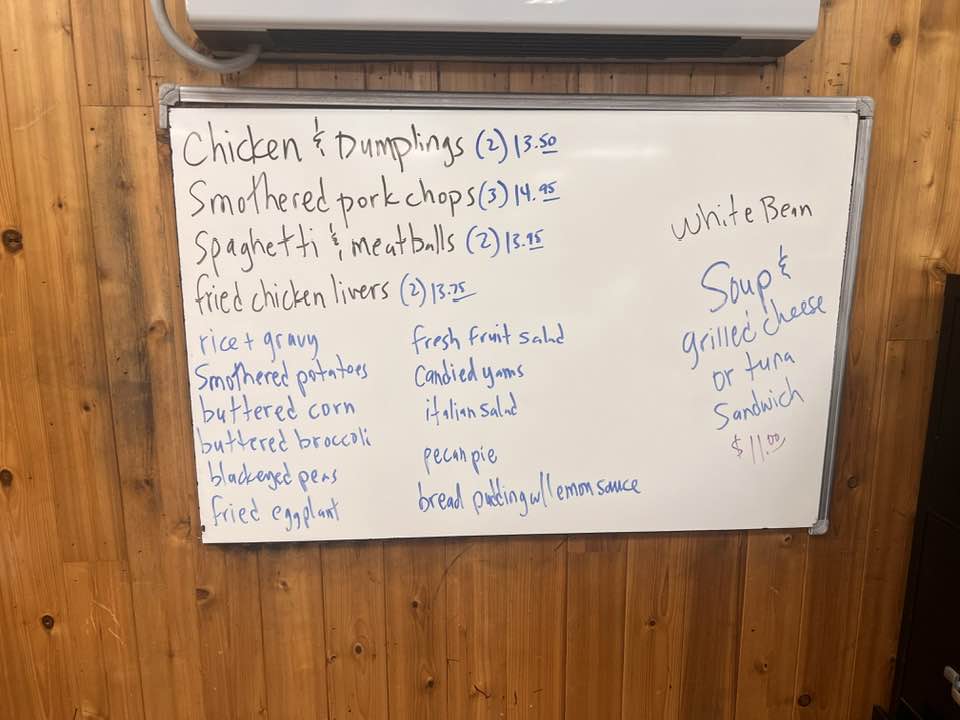 Chicken & Dumplings (2) 13.50
Smothered pork chops (3) 14.95
Spaghetti & meatballs (2) 13.95
fried chicken livers (2) 13.75
rice + gravy
Smothered potatoes
buttered corn
buttered broccoli
blackeyed peas
fried eggplant
fresh fruit salad
Candied yams
italian salad
pecan pie
bread pudding w/ lemon sauce
White Bean
Soup &
grilled cheese
or tuna
Sandwich
$11.00